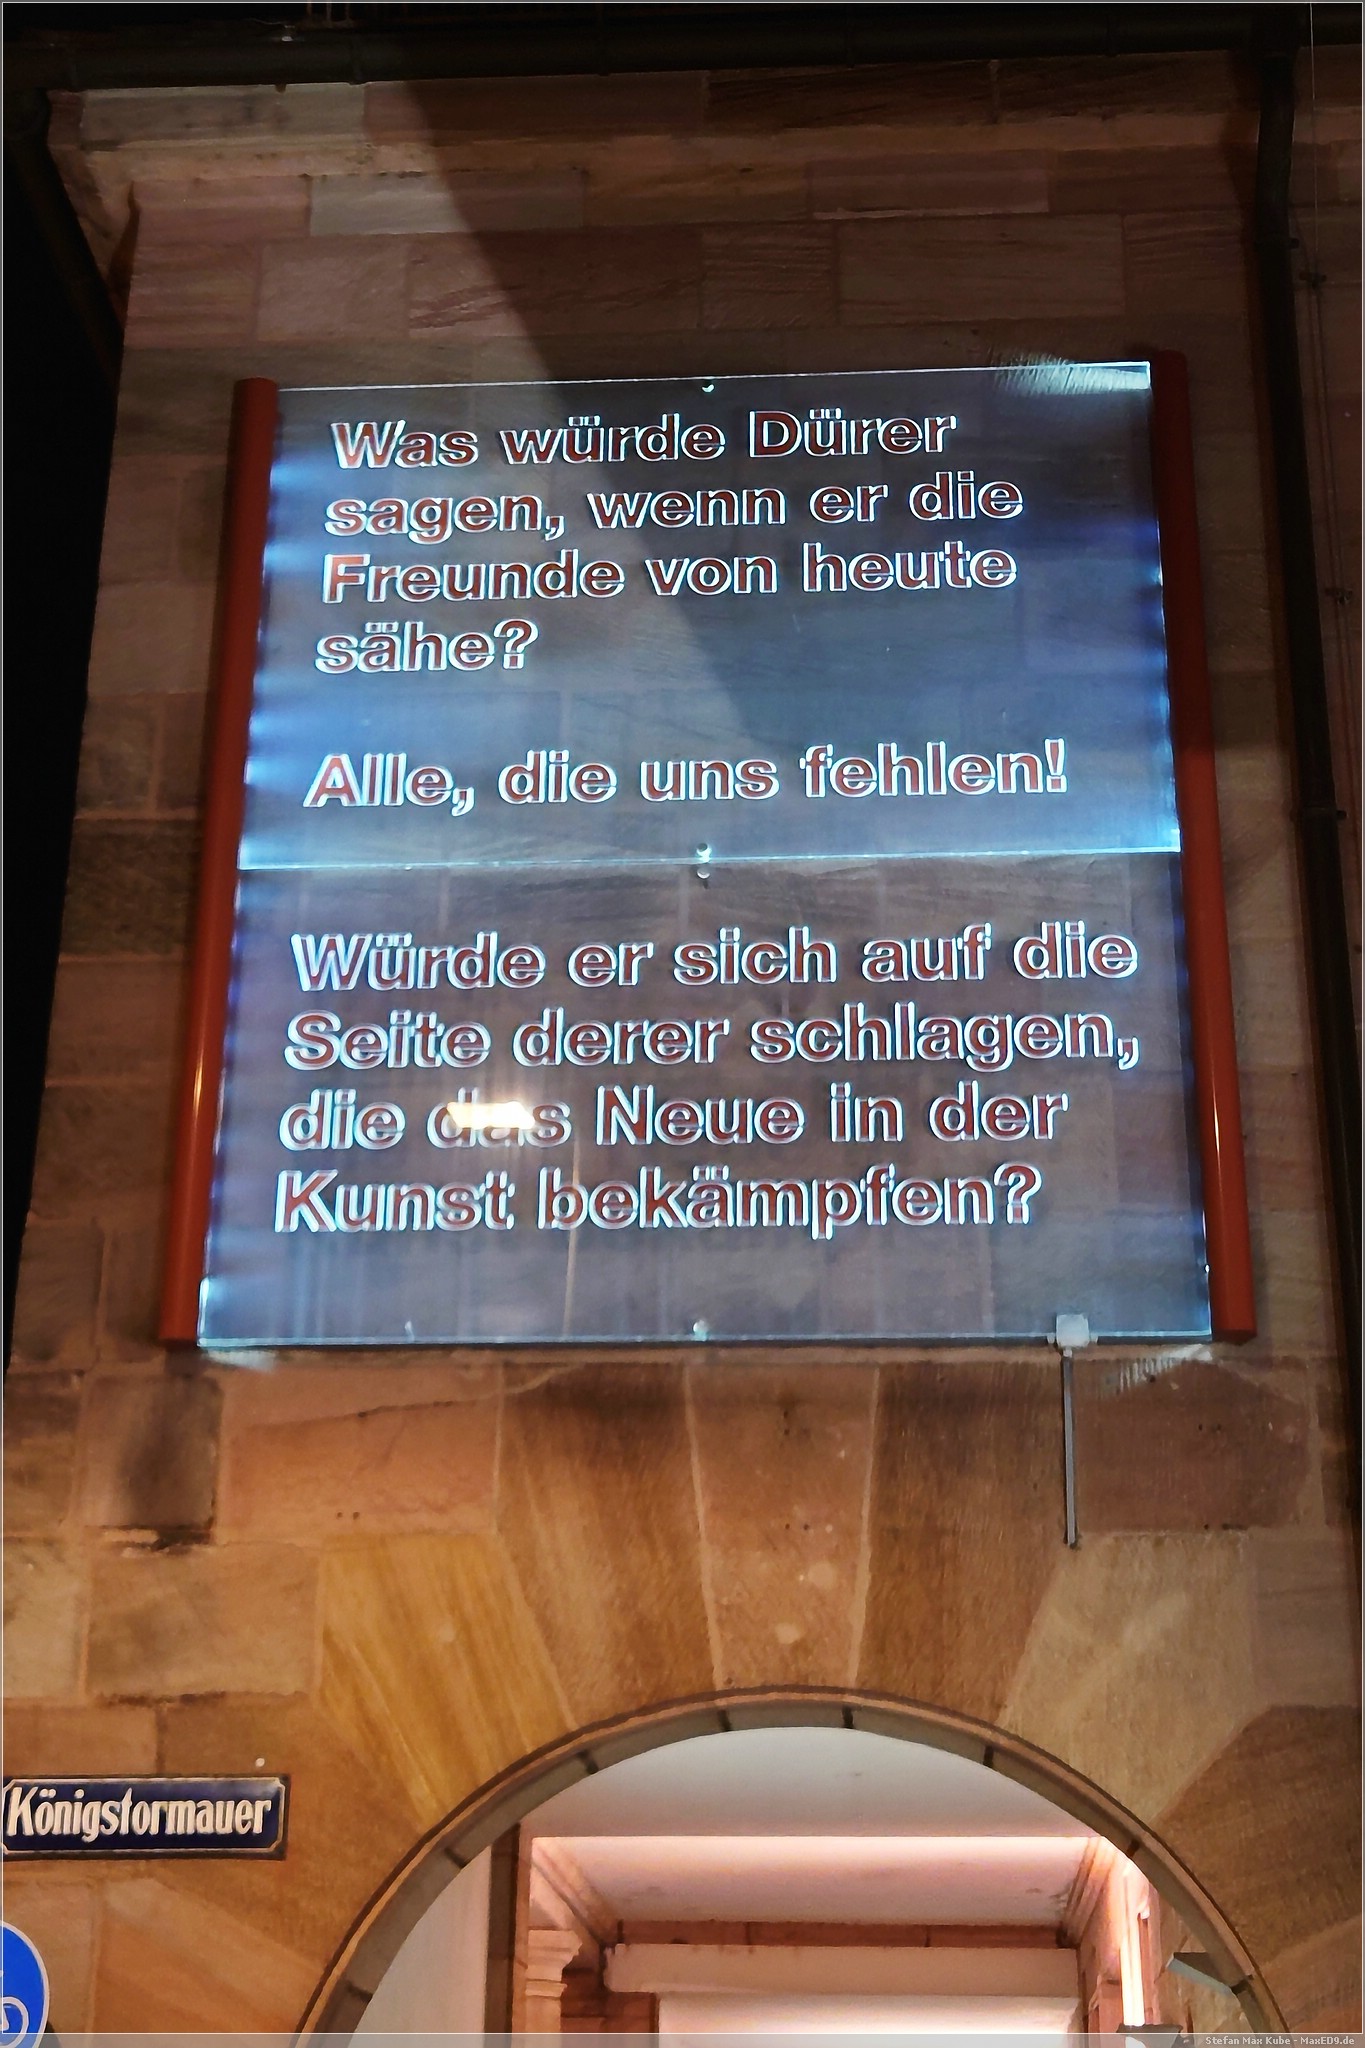 Was würde Dürer
sagen, wenn er die
Freunde von heute
sähe?
Alle, die uns fehlen!
Würde er sich auf die
Seite derer schlagen,
die das Neue in der
Kunst bekämpfen?
Königstormauer
Stefan Max Kube - MaxED9.de